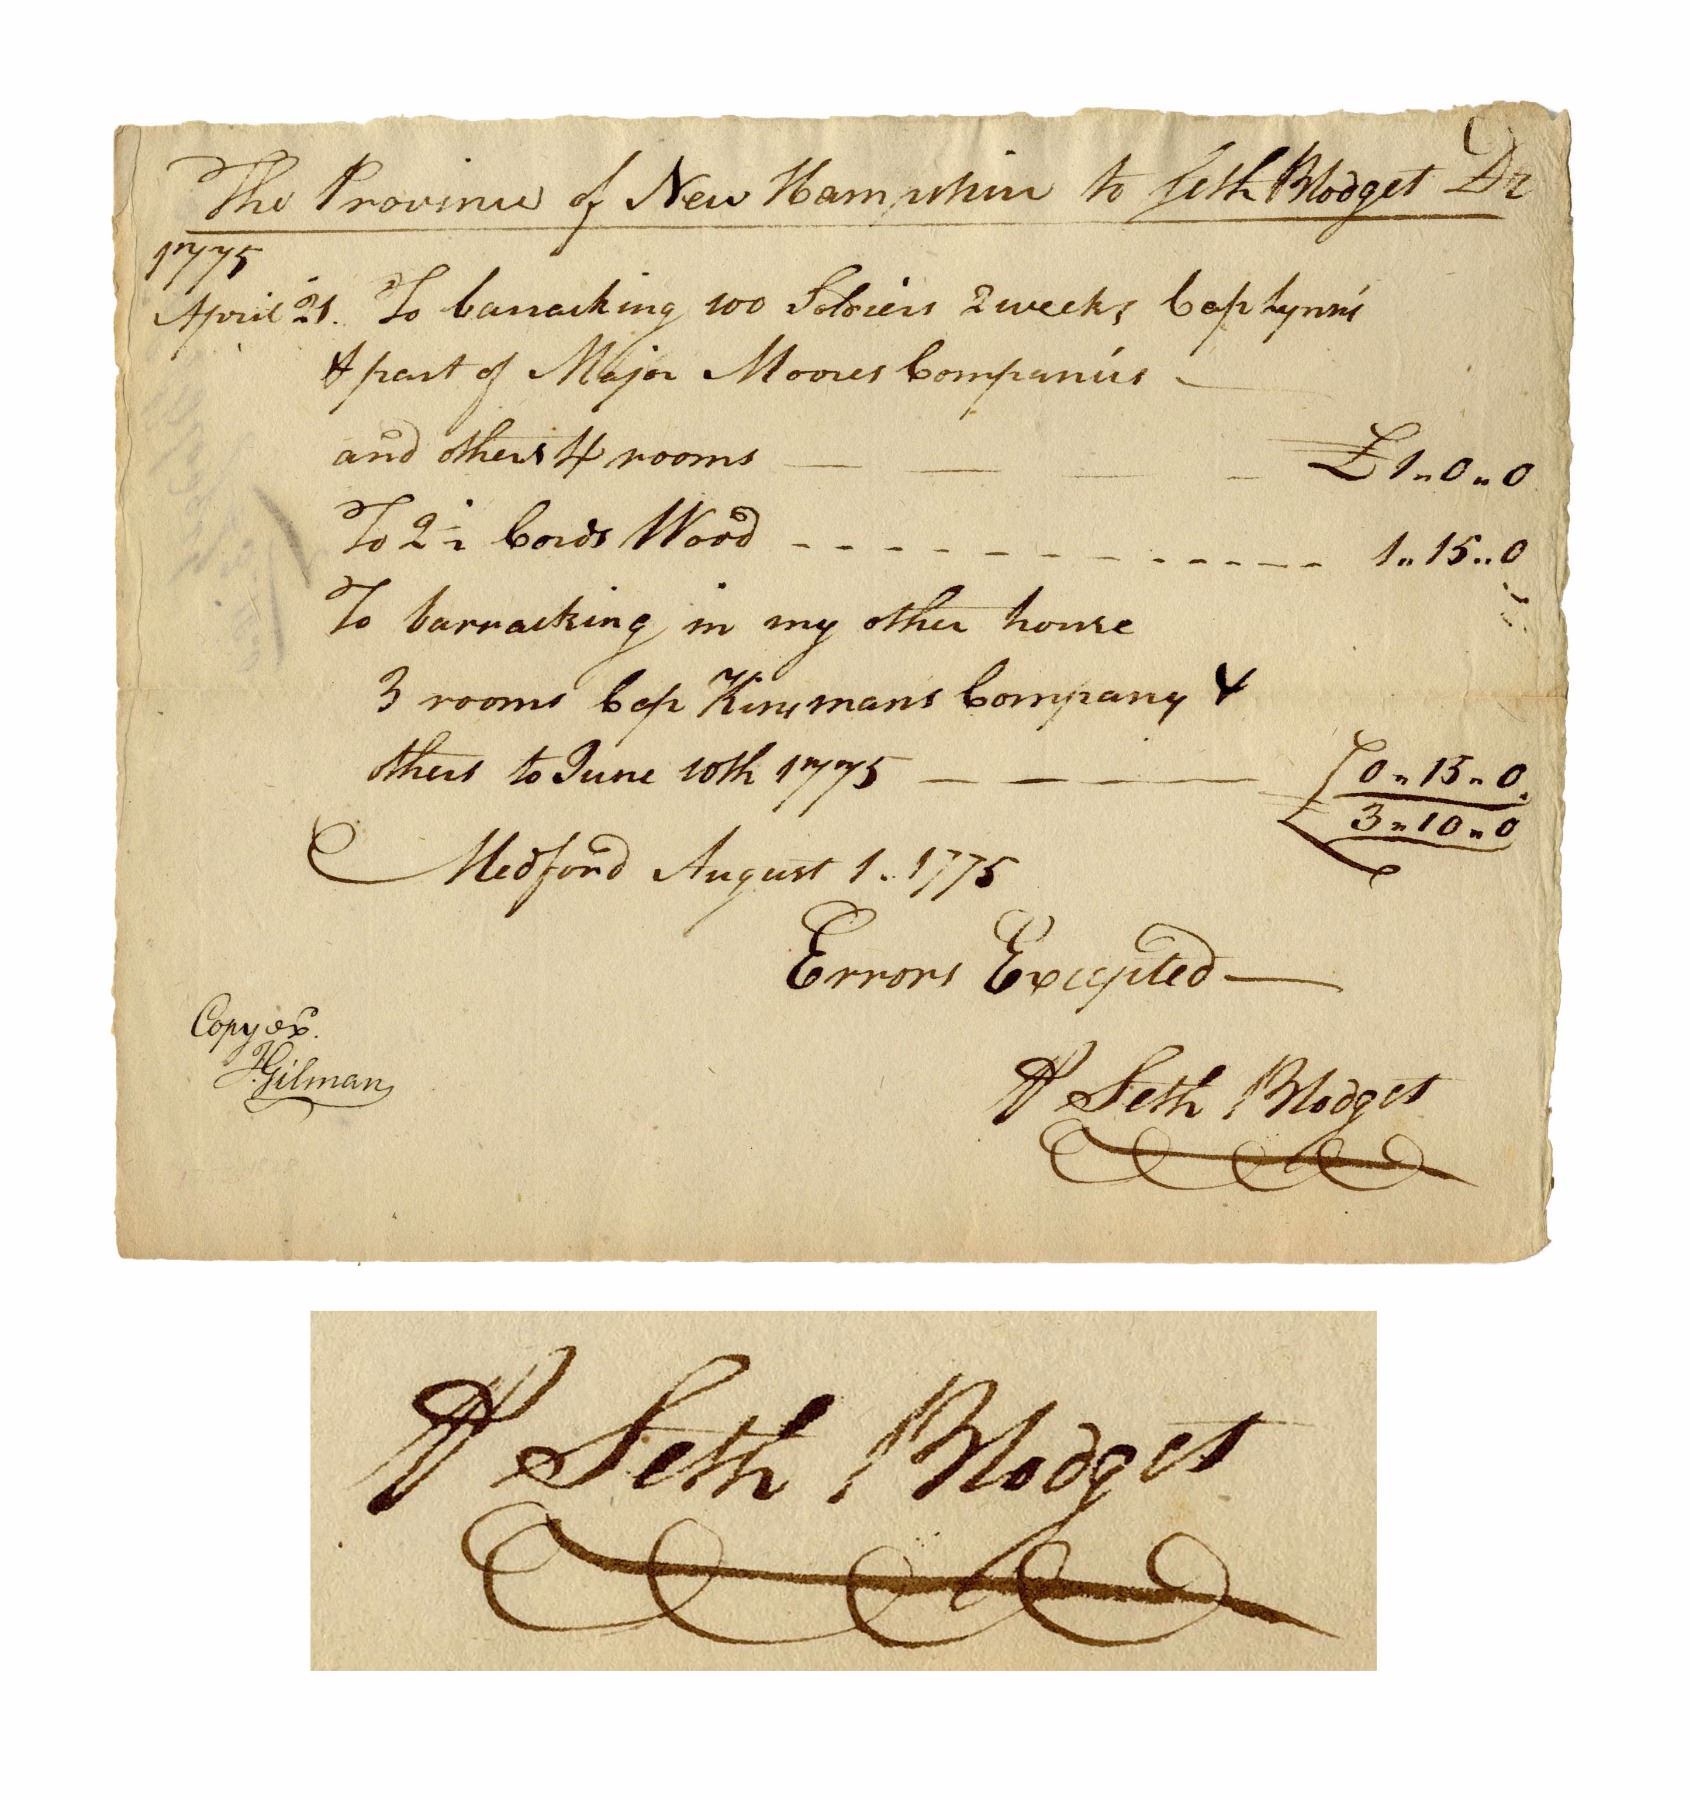 The Province of New Hampshire to Seth Blodget Dr
1775
April 21. To barracking 100 Soldiers 2 weeks Cap Lynn's
& part of Major Moores Companies
and others 4 rooms £ 1 " 0 " 0
To 2½ Cords Wood 1 " 15 " 0
To barracking in my other house
3 rooms Cap Kinsmans Company &
others to June 10th 1775 0 " 15 " 0.
£ 3 " 10 " 0
Medford August 1. 1775
Errors Excepted
Copy ex.
J. Gilman
⅌ Seth Blodget
⅌ Seth Blodget